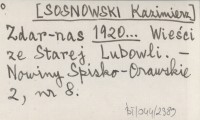 [SOSNOWSKI Kazimierz]
Zdar-nas 1920... Wieści
ze Starej Lubowli. –
Nowiny Spisko-Orawskie
2, nr 8.
bj/044/2389